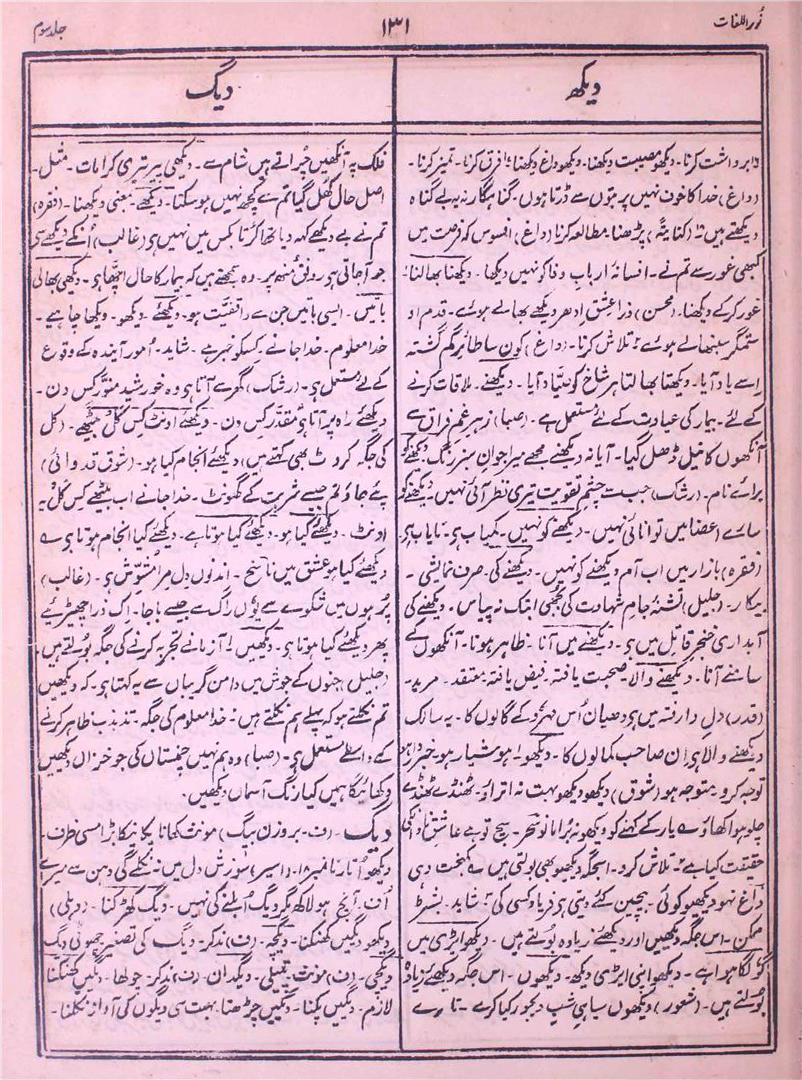 نورُ اللغات
۱۳۱
جلد سوم
دیکھ
دیگ
برداشت کرنا۔ دیکھو مصیبت دیکھنا۔ دیکھو داغ دیکھنا۔ فرق کرنا۔ تمیز کرنا۔
(داغ) خدا کا خوف نہیں پر بتوں سے ڈرتا ہوں۔ گناہگار نہ یہ بے گناہ
دیکھتے ہیں (کنایۃً) پڑھنا۔ مطالعہ کرنا (داغ) افسوس کہ فرصت میں
کبھی غور سے تم نے۔ افسانۂ اربابِ وفا کو نہیں دیکھا۔ دیکھنا بھالنا۔
غور کر کے دیکھنا۔ (محسن) ذرا عشق اِدھر دیکھے بھالے ہوئے۔ قدم او
ستمگر سنبھالے ہوئے۔ تلاش کرنا۔ (داغ) کون سا طائرِ گم گشتہ
اِسے یاد آیا۔ دیکھتا بھالتا ہر شاخ کو صیّاد آیا۔ دیکھنے۔ ملاقات کرنے
کے لئے۔ بیمار کی عیادت کے لئے مستعمل ہے۔ (صبا) زہرِ غمِ فراق سے
آنکھوں کا نیل ڈھل گیا۔ آیا نہ دیکھنے مجھے میرا جوانِ سبز رنگ۔ دیکھنے کو
برائے نام۔ (رشک) جب سے چشم تقویت تیری نظر آئی نہیں۔ دیکھنے کو
سارے اعضا میں توانائی نہیں۔ دیکھنے کو نہیں۔ کمیاب ہے۔ نایاب ہے
(فقرہ) بازار میں اب آم دیکھنے کو نہیں۔ دیکھنے کی۔ صرف نمائشی۔
بیکار۔ (جلیل) تشنۂ جامِ شہادت کی بجھی ابتک نہ پیاس۔ دیکھنے کی
آبداری خنجرِ قاتل میں ہے۔ دیکھنے میں آنا۔ ظاہر ہونا۔ آنکھوں کے
سامنے آنا۔ دیکھنے والا۔ صحبت یافتہ۔ فیض یافتہ۔ معتقد۔ مرید۔
(قدر) دلِ وارفتہ میں ہے دھیان اُس کے گالوں کا۔ یہ سالک
دیکھنے والا ہے ان صاحب کمالوں کا۔ دیکھو۔ ہوشیار ہو۔ خبردار ہو
توجہ کرو۔ متوجہ ہو (شوق) دیکھو دیکھو بہت نہ اتراؤ۔ ٹھنڈے ٹھنڈے
چلو ہوا کھاؤ۔ یار کے کہنے کو دیکھو نہ بُرا مانو۔ سچ تو ہے عاشقِ ناداں کی
حقیقت کیا ہے۔ تلاش کرو۔ اسجگہ دیکھیو بھی بولتی ہیں۔ کمبخت وہی
داغ نہو دیکھیو کوئی۔ بیچین کئے دیتی ہے فریاد کسی کی۔ شاید۔ بشرط
ممکن۔ اس جگہ دیکھیں اور دیکھئے زیادہ بولتے ہیں۔ دیکھو ایڑی میں
گُو لگا ہوا ہے۔ دیکھو اپنی ایڑی دیکھ۔ دیکھوں۔ اس جگہ دیکھئے زیادہ
بولتے ہیں۔ (شعور) دیکھوں سیاہیِ شبِ دیجور کیا کرے۔ تارے
فلک پہ آنکھیں چُراتے ہیں شام سے۔ دیکھی پیر تیری کرامات۔ مثل۔
اصل حال کھل گیا تم سے کچھ نہیں ہو سکتا۔ دیکھے۔ معنی دیکھنا۔ (فقرہ)
تم نے بے دیکھے کہہ دیا تھا کُرتا بکس میں نہیں ہے (غالب) اُنکے دیکھے سے
جو آجاتی ہے رونق منھ پر۔ وہ سمجھتے ہیں کہ بیمار کا حال اچھا ہے۔ دیکھی بھالی
باتیں۔ ایسی باتیں جن سے واقفیت ہو۔ دیکھئے۔ دیکھو۔ دیکھا چاہیے۔
خدا معلوم۔ خدا جانے۔ کسکو خبر ہے۔ شاید۔ اُمورِ آیندہ کے وقوع
کے لئے مستعمل ہے۔ (رشک) گھر سے آتا ہے وہ خورشیدِ منوّر کس دن۔
دیکھئے راہ پہ آتا ہے مقدّر کس دن۔ دیکھئے اونٹ کس کَل بیٹھے۔ (کَل
کی جگہ کروٹ بھی کہتے ہیں) دیکھئے انجام کیا ہو۔ (شوق قدوائی)
پئے جاؤ تم جیسے شربت کے گھونٹ۔ خدا جانے اب بیٹھے کس کَل یہ
اونٹ۔ دیکھئے کیا ہو۔ دیکھئے کیا ہوتا ہے۔ دیکھئے کیا انجام ہوتا ہے
دیکھئے کیا ہو عشق میں ناسخ۔ اندنوں دل مرا مشوّش ہے۔ (غالب)
پُر ہوں میں شکوے سے یوں راگ سے جیسے باجا۔ اِک ذرا چھیڑیے
پھر دیکھئے کیا ہوتا ہے۔ دیکھیں۔ آزمانے تجربہ کرنے کی جگہ بولتے ہیں۔
(جلیل) جنوں کے جوش میں دامن گریباں سے یہ کہتا ہے۔ کہ دیکھیں
تم نکلتے ہو کہ پہلے ہم نکلتے ہیں۔ خدا معلوم کی جگہ۔ تذبذب ظاہر کرنے
کے واسطے مستعمل ہے۔ (صبا) وہ ہم نہیں چمنستاں کی جو خزاں دیکھیں
دکھائیگا ہیں کیا رنگ آسماں دیکھیں۔
دیگ۔ (ف۔ بروزن بیگ) مونث کھانا پکانیکا بڑا مسی ظرف۔
دیکھو اُتارنا نمبر ۱۸۔ (اسیر) سوزشِ دل میں نہ نکلے گی دہن سے میرے
اُف۔ آنچ ہو لاکھ مگر دیگ اُبلنے کی نہیں۔ دیگ کھڑکنا۔ (دہلی)
دیکھو دیگیں کھنکنا۔ دیگچہ۔ (ف) مذکر۔ دیگ کی تصغیر چھوٹی دیگ
دیگچی۔ (ف) مونث۔ پتیلی۔ دیگدان۔ (ف) مذکر۔ چولھا۔ دیگیں کھنکنا
لازم۔ دیگیں پکنا۔ دیگیں چڑھنا۔ بہت سی دیگوں کی آواز نکلنا۔